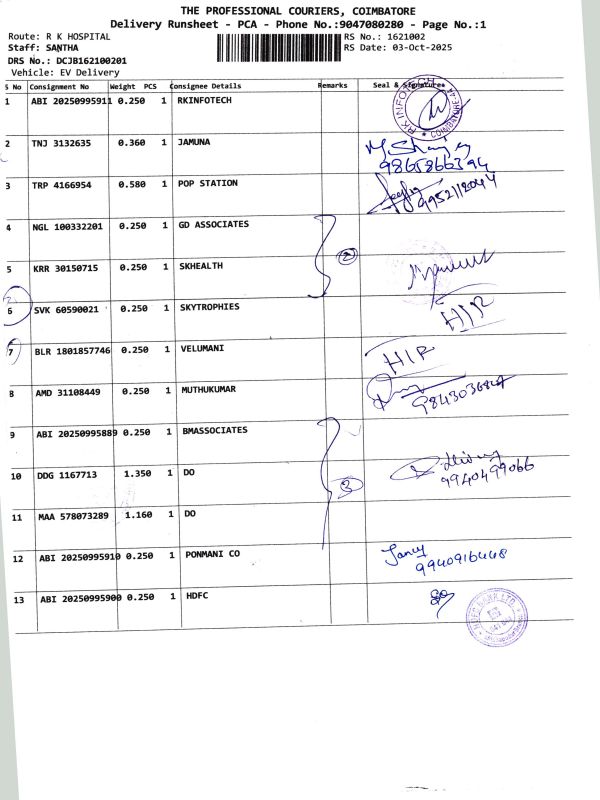 THE PROFESSIONAL COURIERS, COIMBATORE
Delivery Runsheet - PCA - Phone No.:9047080280 - Page No.:1
Route: R K HOSPITAL
RS No.: 1621002
Staff: SANTHA
RS Date: 03-Oct-2025
DRS No.: DCJB162100201
Vehicle: EV Delivery
S No Consignment No Weight PCS Consignee Details Remarks Seal & Signature
1 ABI 20250995911 0.250 1 RKINFOTECH
2 TNJ 3132635 0.360 1 JAMUNA
9865866394
3 TRP 4166954 0.580 1 POP STATION
9952112044
4 NGL 100332201 0.250 1 GD ASSOCIATES
2
5 KRR 30150715 0.250 1 SKHEALTH
6 SVK 60590021 0.250 1 SKYTROPHIES
HIR
7 BLR 1801857746 0.250 1 VELUMANI
HIR
8 AMD 31108449 0.250 1 MUTHUKUMAR
9 ABI 20250995889 0.250 1 BMASSOCIATES
10 DDG 1167713 1.350 1 DO
3
9940499066
11 MAA 578073289 1.160 1 DO
12 ABI 20250995910 0.250 1 PONMANI CO
Jancy
9940916448
13 ABI 20250995900 0.250 1 HDFC